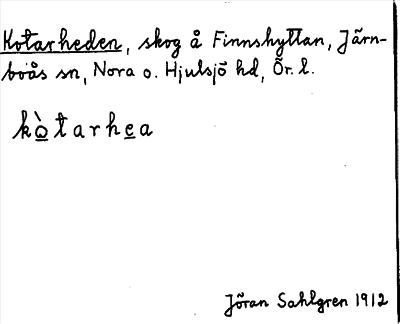 Kotarheden, skog å Finnshyttan, Järn-
boås sn, Nora o. Hjulsjö hd, Ör. l.
kòtarhea
Jöran Sahlgren 1912